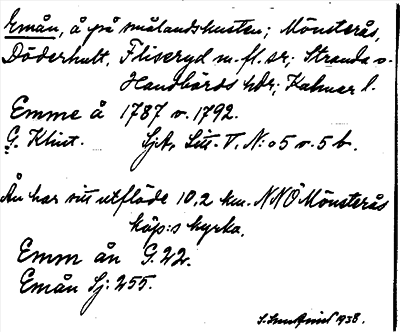 Emån, å på smålandskusten; Mönsterås,
Döderhult, Fliseryd m. fl. sr; Stranda o.
Handbörds hdr; Kalmar l.
Emme å 1787 o. 1792.
G. Klint. Sjk, Litt. V. N:o 5 o. 5 b.
Ån har sitt utflöde 10,2 km. NNO Mönsterås
köp:s kyrka.
Emm ån G. 22.
Emån Sj: 255.
1938.